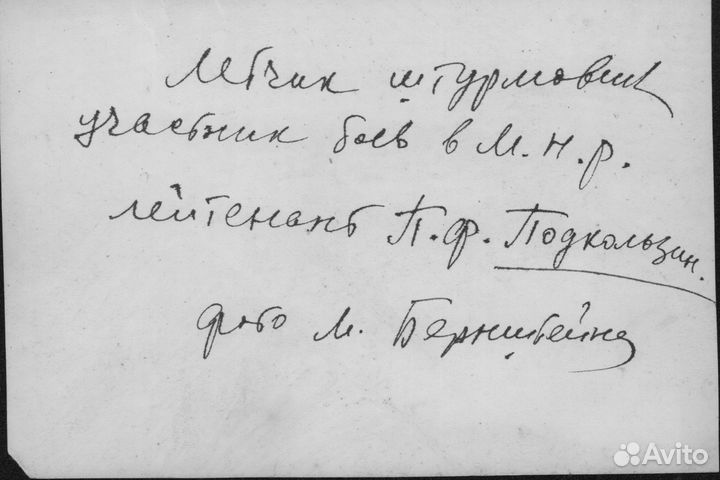 Летчик штурмовик
участник боев в М.Н.Р.
лейтенант П.Ф. Подкользин.
фото М. Бернштейна
Avito